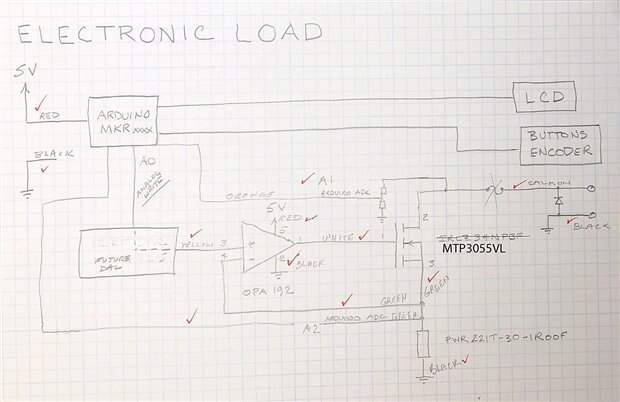 ELECTRONIC LOAD
5V
RED
ARDUINO
MKR xxxx
LCD
BUTTONS
ENCODER
BLACK
A0
ANALOG
WRITE
A1
ORANGE
ARDUINO ADC
SALMON
BLACK
5V
RED
5
2
YELLOW
3
+
1
WHITE
1
MTP3055VL
FUTURE
DAC
4
-
2
BLACK
3
OPA 192
GREEN
GREEN
ARDUINO ADC
GREEN
A2
PWR221T-30-1R00F
BLACK